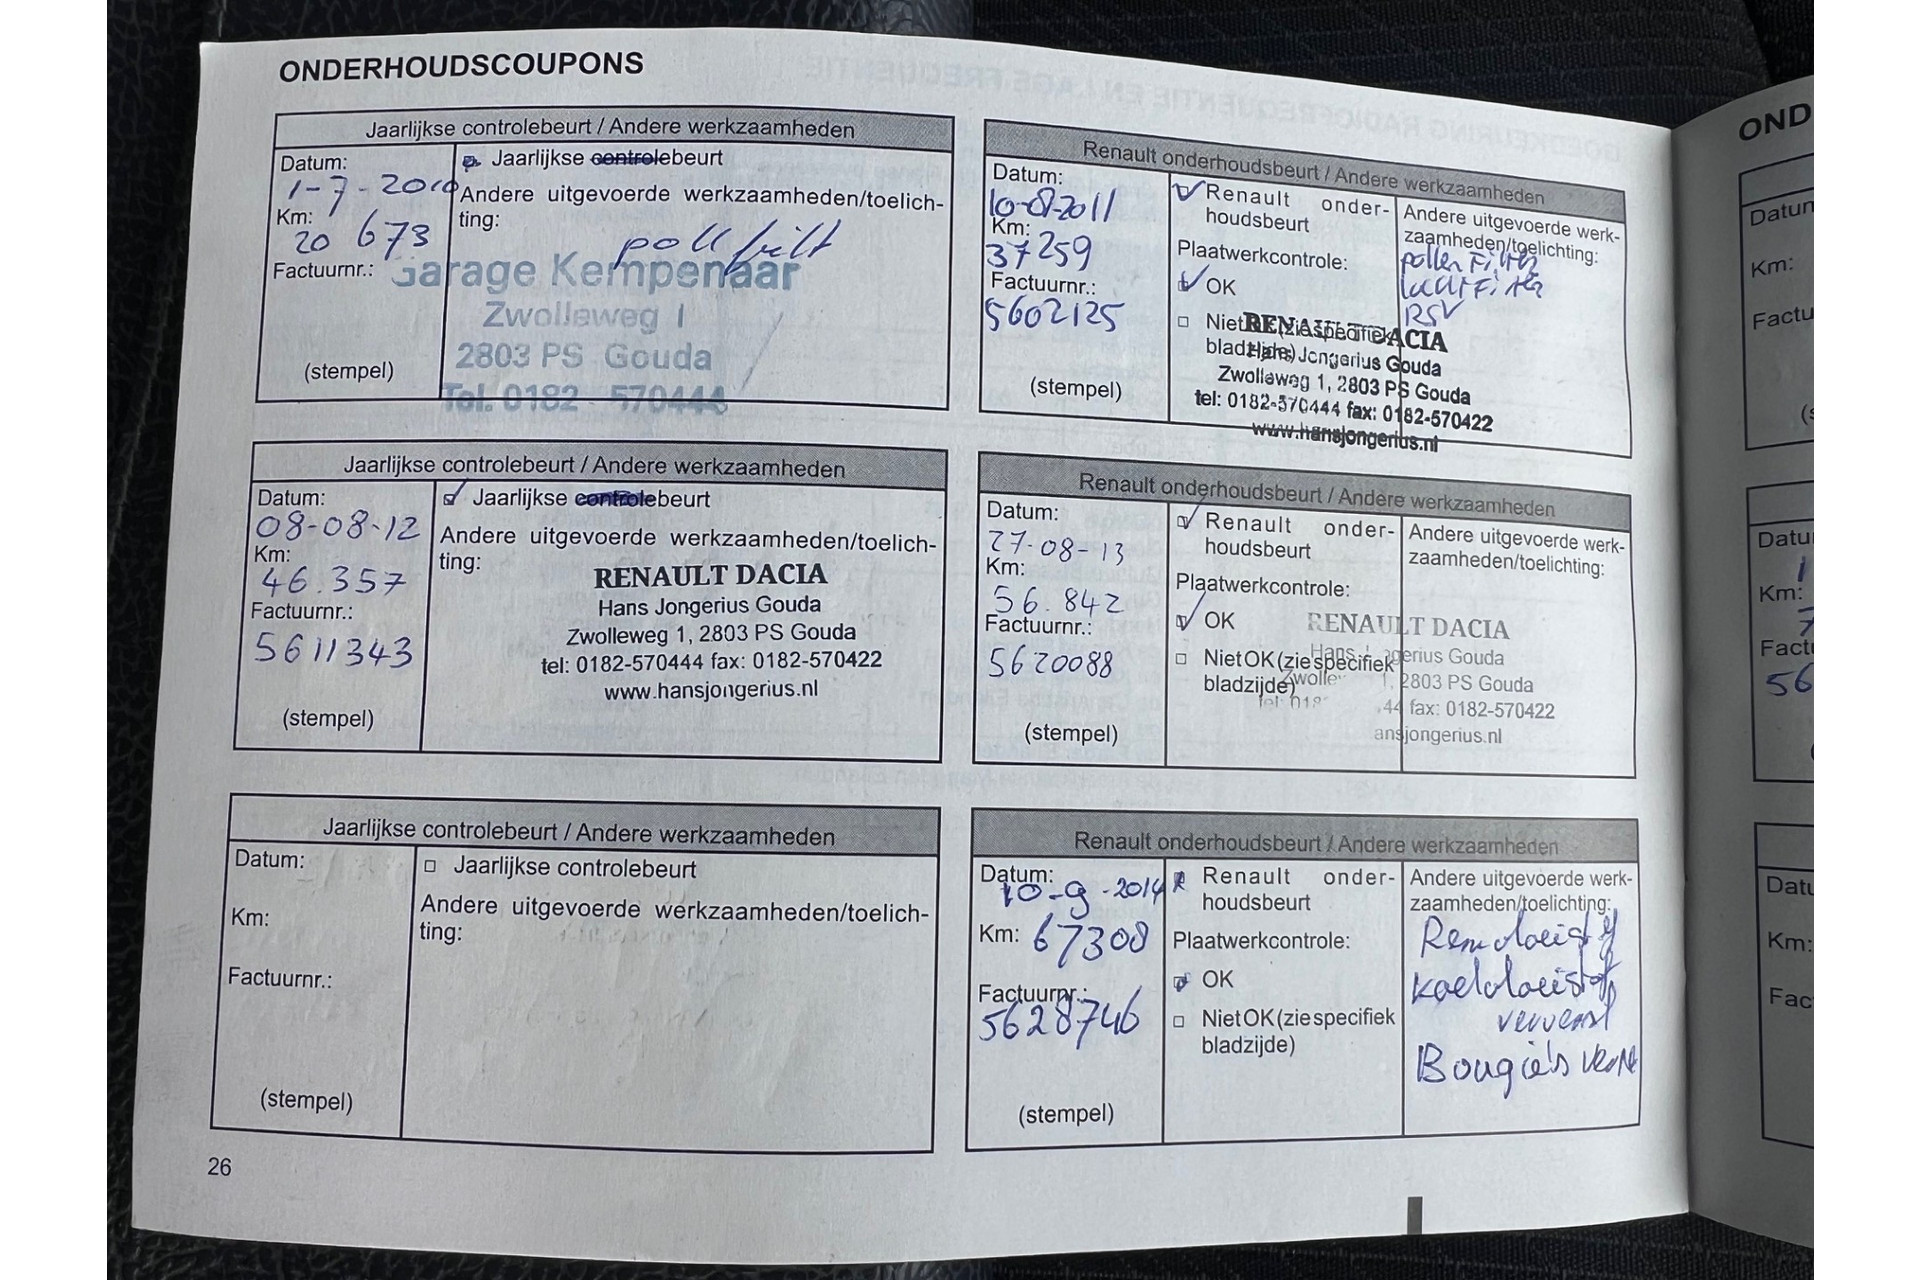 ONDERHOUDSCOUPONS
Jaarlijkse controlebeurt / Andere werkzaamheden
Datum:
1-7-2010
Km:
20 673
Factuurnr.:
(stempel)
Jaarlijkse controlebeurt
Andere uitgevoerde werkzaamheden/toelich-
ting:
poll filt
Garage Kempenaar
Zwolleweg 1
2803 PS Gouda
Tel. 0182 - 570444
Renault onderhoudsbeurt / Andere werkzaamheden
Datum:
10-08-2011
Km:
37259
Factuurnr.:
5602125
(stempel)
Renault onder-
houdsbeurt
Plaatwerkcontrole:
OK
Niet OK (zie specifiek
bladzijde)
Andere uitgevoerde werk-
zaamheden/toelichting:
pollen Filter
luchtFilter
RSV
RENAULT DACIA
Hans Jongerius Gouda
Zwolleweg 1, 2803 PS Gouda
tel: 0182-570444 fax: 0182-570422
www.hansjongerius.nl
Jaarlijkse controlebeurt / Andere werkzaamheden
Datum:
08-08-12
Km:
46.357
Factuurnr.:
5611343
(stempel)
Jaarlijkse controlebeurt
Andere uitgevoerde werkzaamheden/toelich-
ting:
RENAULT DACIA
Hans Jongerius Gouda
Zwolleweg 1, 2803 PS Gouda
tel: 0182-570444 fax: 0182-570422
www.hansjongerius.nl
Renault onderhoudsbeurt / Andere werkzaamheden
Datum:
27-08-13
Km:
56.842
Factuurnr.:
5620088
(stempel)
Renault onder-
houdsbeurt
Plaatwerkcontrole:
OK
Niet OK (zie specifiek
bladzijde)
Andere uitgevoerde werk-
zaamheden/toelichting:
RENAULT DACIA
Hans Jongerius Gouda
Zwolle 1, 2803 PS Gouda
tel: 018 44 fax: 0182-570422
ansjongerius.nl
Jaarlijkse controlebeurt / Andere werkzaamheden
Datum:
Km:
Factuurnr.:
(stempel)
Jaarlijkse controlebeurt
Andere uitgevoerde werkzaamheden/toelich-
ting:
Renault onderhoudsbeurt / Andere werkzaamheden
Datum:
10-9-2014
Km: 67308
Factuurnr.:
5628746
(stempel)
Renault onder-
houdsbeurt
Plaatwerkcontrole:
OK
Niet OK (zie specifiek
bladzijde)
Andere uitgevoerde werk-
zaamheden/toelichting:
Remvloeistof
koelvloeistof
ververst
Bougie's
26
OND
Datum
Km:
Factu
Datu
1
Km:
7
Factu
56
Datu
Km:
Fac